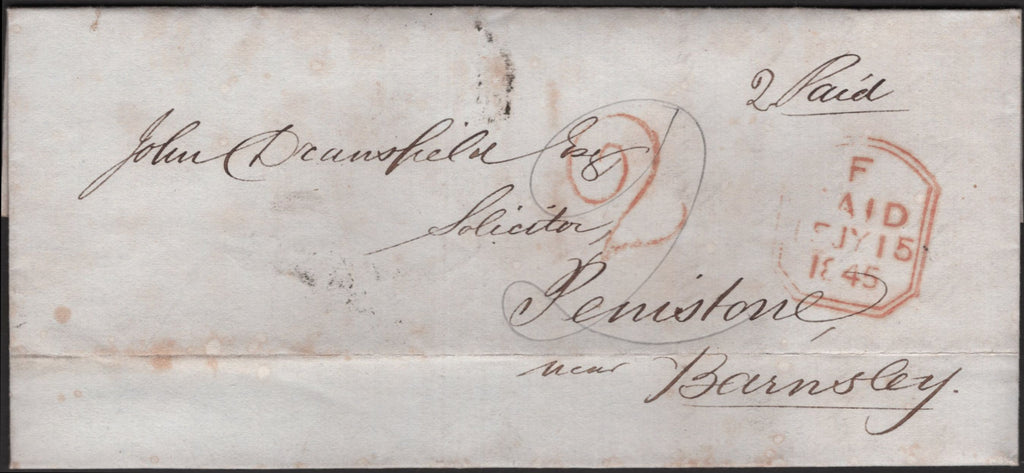 2 Paid
John Dransfield Esq
Solicitor,
Penistone,
near
Barnsley.
2
F
AID
JY 15
1845